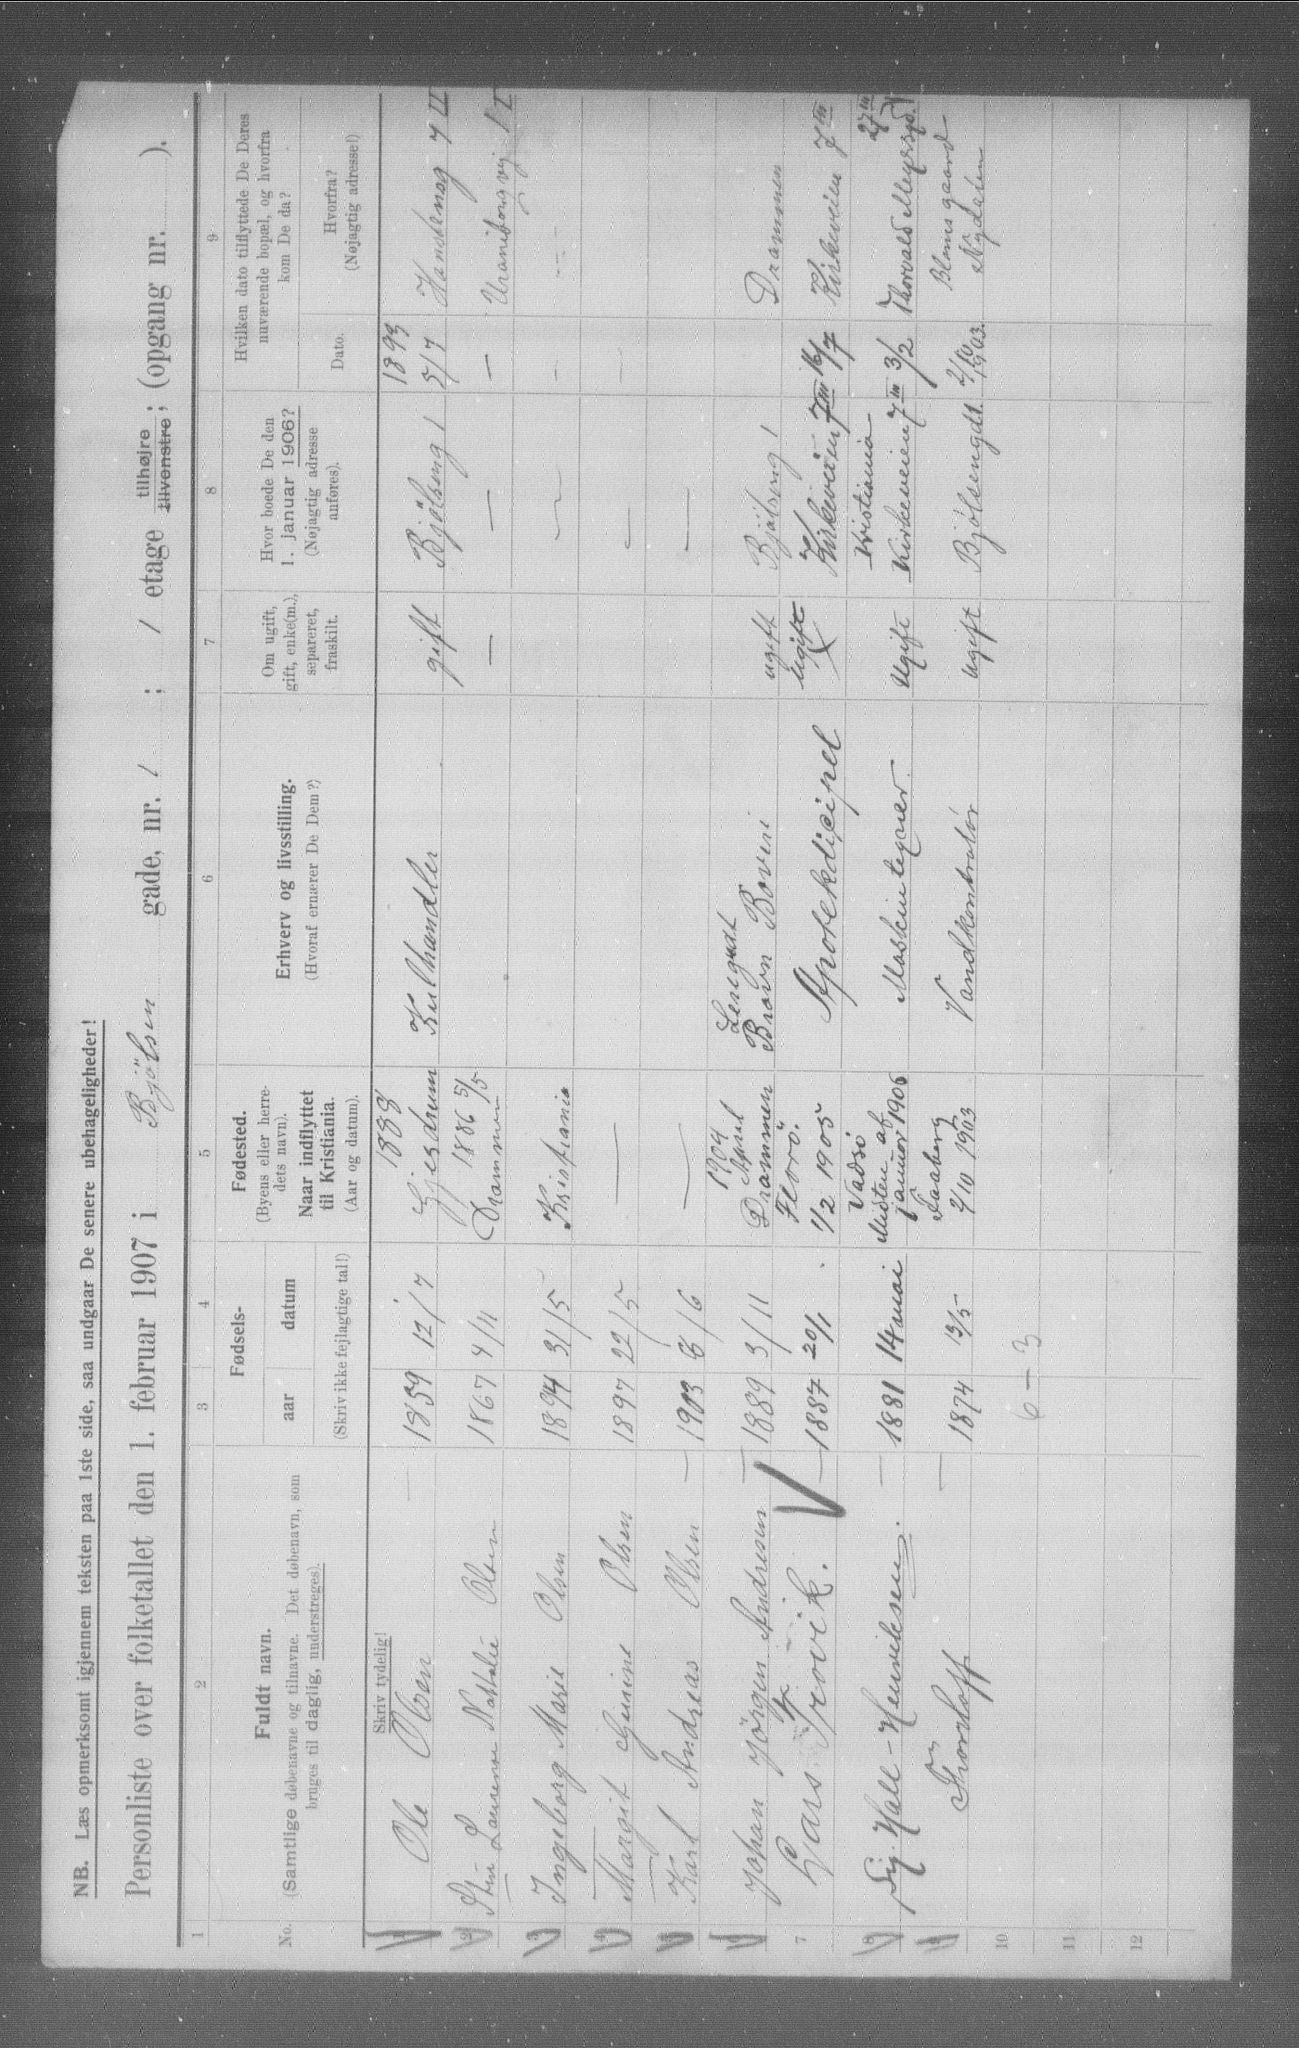 NB. Læs opmerksomt igjennem teksten paa 1ste side, saa undgaar De senere ubehageligheder!
Personliste over folketallet den 1. februar 1907 i Bjölsen gade, nr. 1 ; 1 etage tilhøjre tilvenstre; (opgang nr. ).
1 2 3 4 5 6 7 8 9
No.
Fuldt navn.
(Samtlige døbenavne og tilnavne. Det døbenavn, som
bruges til daglig, understreges).
Skriv tydelig!
Fødsels-
aar datum
(Skriv ikke fejlagtige tal!)
Fødested.
(Byens eller herre-
dets navn).
Naar indflyttet
til Kristiania.
(Aar og datum).
Erhverv og livsstilling.
(Hvoraf ernærer De Dem?)
Om ugift,
gift, enke(m.),
separeret,
fraskilt.
Hvor boede De den
1. januar 1906?
(Nøjagtig adresse
anføres).
Hvilken dato tilflyttede De Deres
nuværende bopæl, og hvorfra
kom De da?
Dato.
Hvorfra?
(Nøjagtig adresse!)
1888 1893
Ole Olsen 1859 12/7 Gjesdrum Kulhandler gift Bjölseng 1 5/7 7 II
1886 5/5
Laurense Nathalie Olsen 1867 4/11 Drammen — — — Uranienborgvej 1 I
3 Ingeborg Marie Olsen 1894 31/5 Kristiania — —
4 Margit Gunine Olsen 1897 22/5 — — —
Karl Andreas Olsen — 1903 6/6 — —
1904
Johan Jörgen Andresen — 1889 3/11 Drammen Brown Boveri ugift Bjölseng 1 Drammen
7 Lars Trovik. — 1887 20/1 Florö. 1/2 1905 Apotekdicipel Ugift Kirkeveien 7 III 16/7 Kirkeveien 7 III
Kristiania
Sig. Hall-Henriksen. — 1881 14 mai Vadsö Midten af januar 1906 Maskintegner Ugift Kirkeveien 7 III 3/2 Thorvald Meyersgd. 27 III
Thorshoff — 1874 13/5 Faaberg 2/10 1903 Vandkontrolör ugift Bjölsengdt. 2/10 1903. Nydalen
10 6 — 3
11
12